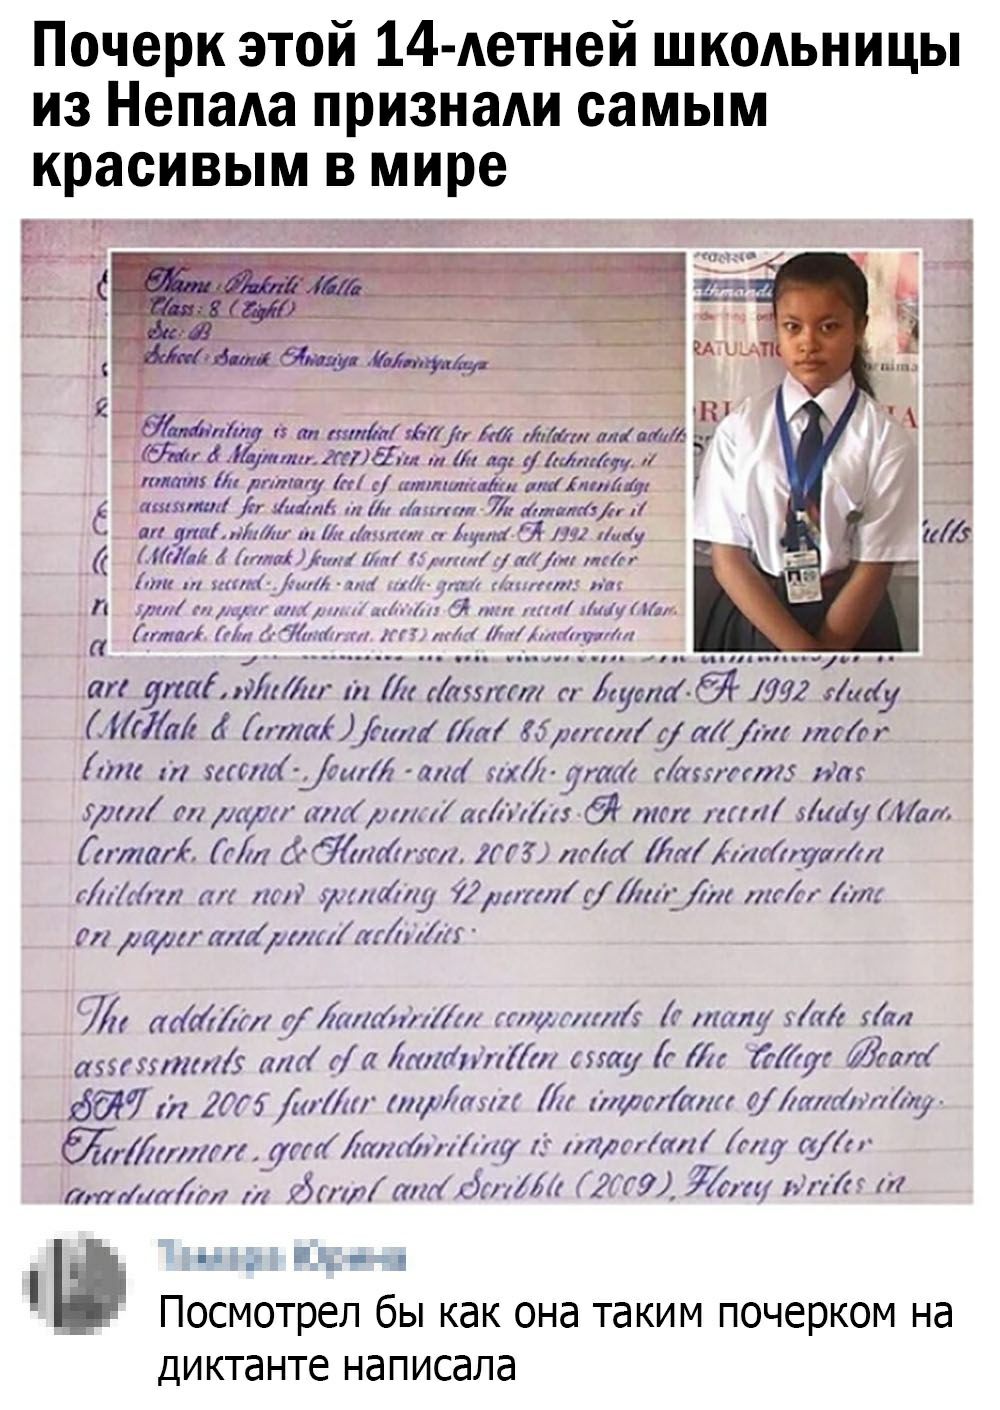 Почерк этой 14-летней школьницы
из Непала признали самым
красивым в мире
Name: Prakriti Malla
Class: 8 (Eight)
Sec: B
School: Sainik Awasiya Mahavidyalaya
Handwriting is an essential skill for both children and adults
(Feder & Majnemer, 2007) Even in the age of technology, it
remains the primary tool of communication and knowledge
assessment for students in the classroom. The demands for it
are great, whether in the classroom or beyond. A 1992 study
(McHale & Cermak) found that 85 percent of all fine motor
time in second-, fourth-and sixth-grade classrooms was
spent on paper and pencil activities. A more recent study (Marr,
Cermark, Cohn & Henderson, 2003) noted that kindergarten
RATULATI
are great, whether in the classroom or beyond. A 1992 study
(McHale & Cermak) found that 85 percent of all fine motor
time in second-, fourth-and sixth-grade classrooms was
spent on paper and pencil activities. A more recent study (Marr,
Cermark, Cohn & Henderson, 2003) noted that kindergarten
children are now spending 42 percent of their fine motor time
on paper and pencil activities.
The addition of handwritten components to many state stan
assessments and of a handwritten essay to the College Board
SAT in 2005 further emphasize the importance of handwriting.
Furthermore, good handwriting is important long after
graduation in Script and Scribble (2009), Florey writes in
Посмотрел бы как она таким почерком на
диктанте написала